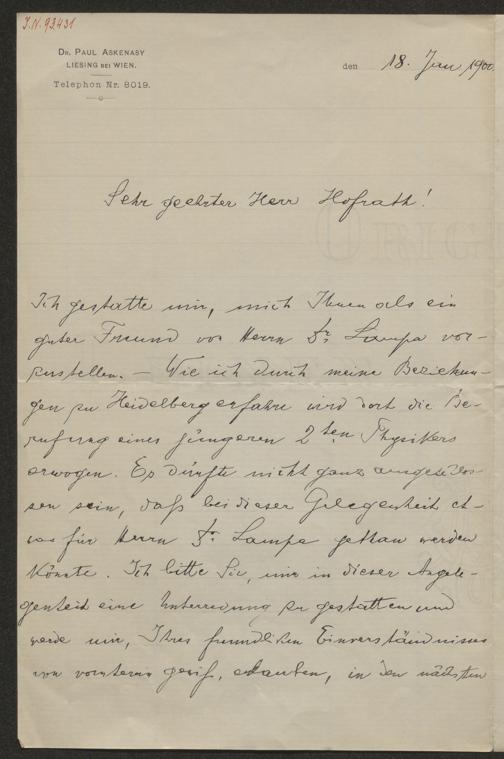 J.N. 93431
DR. PAUL ASKENASY
LIESING BEI WIEN.
Telephon Nr. 8019.
den 18. Jan 1900
Sehr geehrter Herr Hofrath!
Ich gestatte mir, mich Ihnen als ein
guter Freund von Herrn Dr. Lampa vor-
zustellen. – Wie ich durch meine Beziehun-
gen zu Heidelberg erfahre wird dort die Be-
rufung eines jüngeren 2ten Physikers
erwogen. Es dürfte nicht ganz ausgeschlos-
sen sein, daß bei dieser Gelegenheit et-
was für Herrn Dr. Lampa gethan werden
könnte. Ich bitte Sie, mir in dieser Angele-
genheit eine Unterredung zu gestatten und
werde mir, Ihres freundlichen Einverständnisses
von vornherein gewiß, erlauben, in den nächsten
ORIG